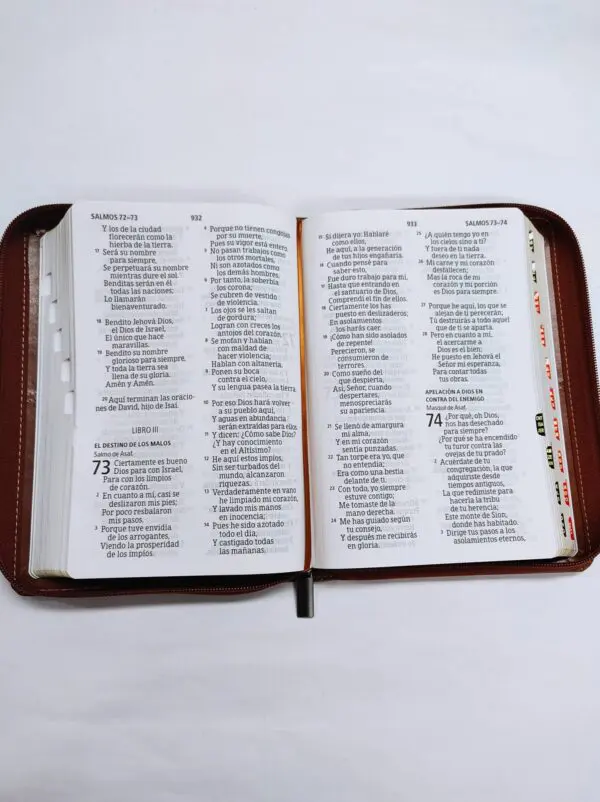 SALMOS 72–73
932
Y los de la ciudad
florecerán como la
hierba de la tierra.
17 Será su nombre
para siempre,
Se perpetuará su nombre
mientras dure el sol.
Benditas serán en él
todas las naciones;
Lo llamarán
bienaventurado.
18 Bendito Jehová Dios,
el Dios de Israel,
El único que hace
maravillas.
19 Bendito su nombre
glorioso para siempre,
Y toda la tierra sea
llena de su gloria.
Amén y Amén.
20 Aquí terminan las oracio-
nes de David, hijo de Isaí.
LIBRO III
EL DESTINO DE LOS MALOS
Salmo de Asaf.
73 Ciertamente es bueno
Dios para con Israel,
Para con los limpios
de corazón.
2 En cuanto a mí, casi se
deslizaron mis pies;
Por poco resbalaron
mis pasos.
3 Porque tuve envidia
de los arrogantes,
Viendo la prosperidad
de los impíos.
4 Porque no tienen congojas
por su muerte,
Pues su vigor está entero.
5 No pasan trabajos como
los otros mortales,
Ni son azotados como
los demás hombres.
6 Por tanto, la soberbia
los corona;
Se cubren de vestido
de violencia.
7 Los ojos se les saltan
de gordura;
Logran con creces los
antojos del corazón.
8 Se mofan y hablan
con maldad de
hacer violencia;
Hablan con altanería.
9 Ponen su boca
contra el cielo,
Y su lengua pasea la tierra.
10 Por eso Dios hará volver
a su pueblo aquí,
Y aguas en abundancia
serán extraídas para ellos.
11 Y dicen: ¿Cómo sabe Dios?
¿Y hay conocimiento
en el Altísimo?
12 He aquí estos impíos,
Sin ser turbados del
mundo, alcanzaron
riquezas.
13 Verdaderamente en vano
he limpiado mi corazón,
Y lavado mis manos
en inocencia;
14 Pues he sido azotado
todo el día,
Y castigado todas
las mañanas.
933
SALMOS 73–74
15 Si dijera yo: Hablaré
como ellos,
He aquí, a la generación
de tus hijos engañaría.
16 Cuando pensé para
saber esto,
Fue duro trabajo para mí,
17 Hasta que entrando en
el santuario de Dios,
Comprendí el fin de ellos.
18 Ciertamente los has
puesto en deslizaderos;
En asolamientos
los harás caer.
19 ¡Cómo han sido asolados
de repente!
Perecieron, se
consumieron de
terrores.
20 Como sueño del
que despierta,
Así, Señor, cuando
despertares,
menospreciarás
su apariencia.
21 Se llenó de amargura
mi alma,
Y en mi corazón
sentía punzadas.
22 Tan torpe era yo, que
no entendía;
Era como una bestia
delante de ti.
23 Con todo, yo siempre
estuve contigo;
Me tomaste de la
mano derecha.
24 Me has guiado según
tu consejo,
Y después me recibirás
en gloria.
25 ¿A quién tengo yo en
los cielos sino a ti?
Y fuera de ti nada
deseo en la tierra.
26 Mi carne y mi corazón
desfallecen;
Mas la roca de mi
corazón y mi porción
es Dios para siempre.
27 Porque he aquí, los que se
alejan de ti perecerán;
Tú destruirás a todo aquel
que de ti se aparta.
28 Pero en cuanto a mí,
el acercarme a
Dios es el bien;
He puesto en Jehová el
Señor mi esperanza,
Para contar todas
tus obras.
APELACIÓN A DIOS EN
CONTRA DEL ENEMIGO
Masquil de Asaf.
74 ¿Por qué, oh Dios,
nos has desechado
para siempre?
¿Por qué se ha encendido
tu furor contra las
ovejas de tu prado?
2 Acuérdate de tu
congregación, la que
adquiriste desde
tiempos antiguos,
La que redimiste para
hacerla la tribu
de tu herencia;
Este monte de Sion,
donde has habitado.
3 Dirige tus pasos a los
asolamientos eternos,